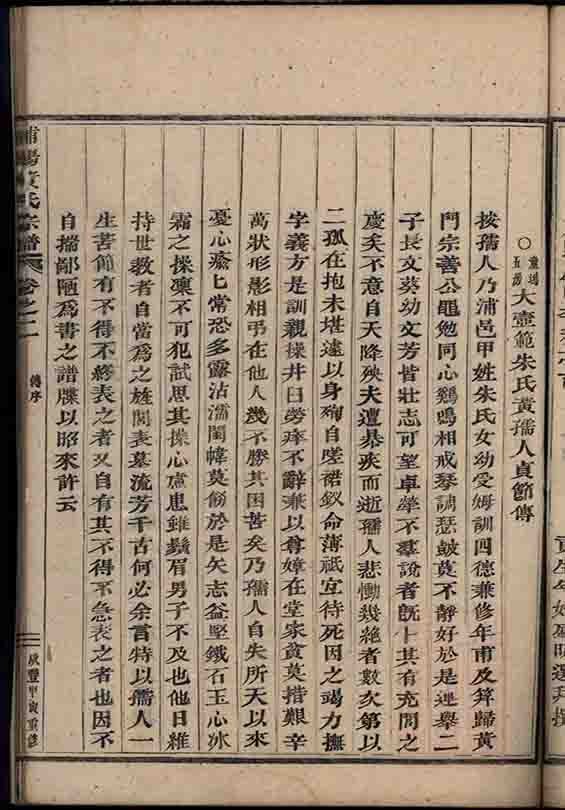 ○童塢五房大壼範朱氏黃孺人貞節傳
按孺人乃浦邑甲姓朱氏女幼受姆訓四德兼修年甫及筓歸黃
門宗善公黽勉同心鷄鳴相戒琴調瑟皷莫不靜好於是連舉二
子長文葵幼文芳皆壯志可望卓犖不羣說者旣卜其有充閭之
慶矣不意自天降殃夫遭暴疾而逝孺人悲慟幾絕者數次第以
二孤在抱未堪遠以身殉自嗟裙釵命薄祇宜待死因之竭力撫
字義方是訓親操井臼勞瘁不辭兼以尊嫜在堂家貧莫措艱辛
萬狀形影相弔在他人幾不勝其困苦矣乃孺人自失所天以來
憂心瘉匕常恐多露沾濡閨幃莫飭於是矢志益堅鐵石玉心冰
霜之操凜不可犯試思其操心慮患雖鬚眉男子不及也他日維
持世教者自當爲之旌閭表墓流芳千古何必余言特以孺人一
生苦節有不得不終表之者又自有其不得不急表之者也因不
自揣鄙陋爲書之譜牒以昭來許云
浦陽黃氏宗譜
卷之二
傳序
咸豐甲寅重修